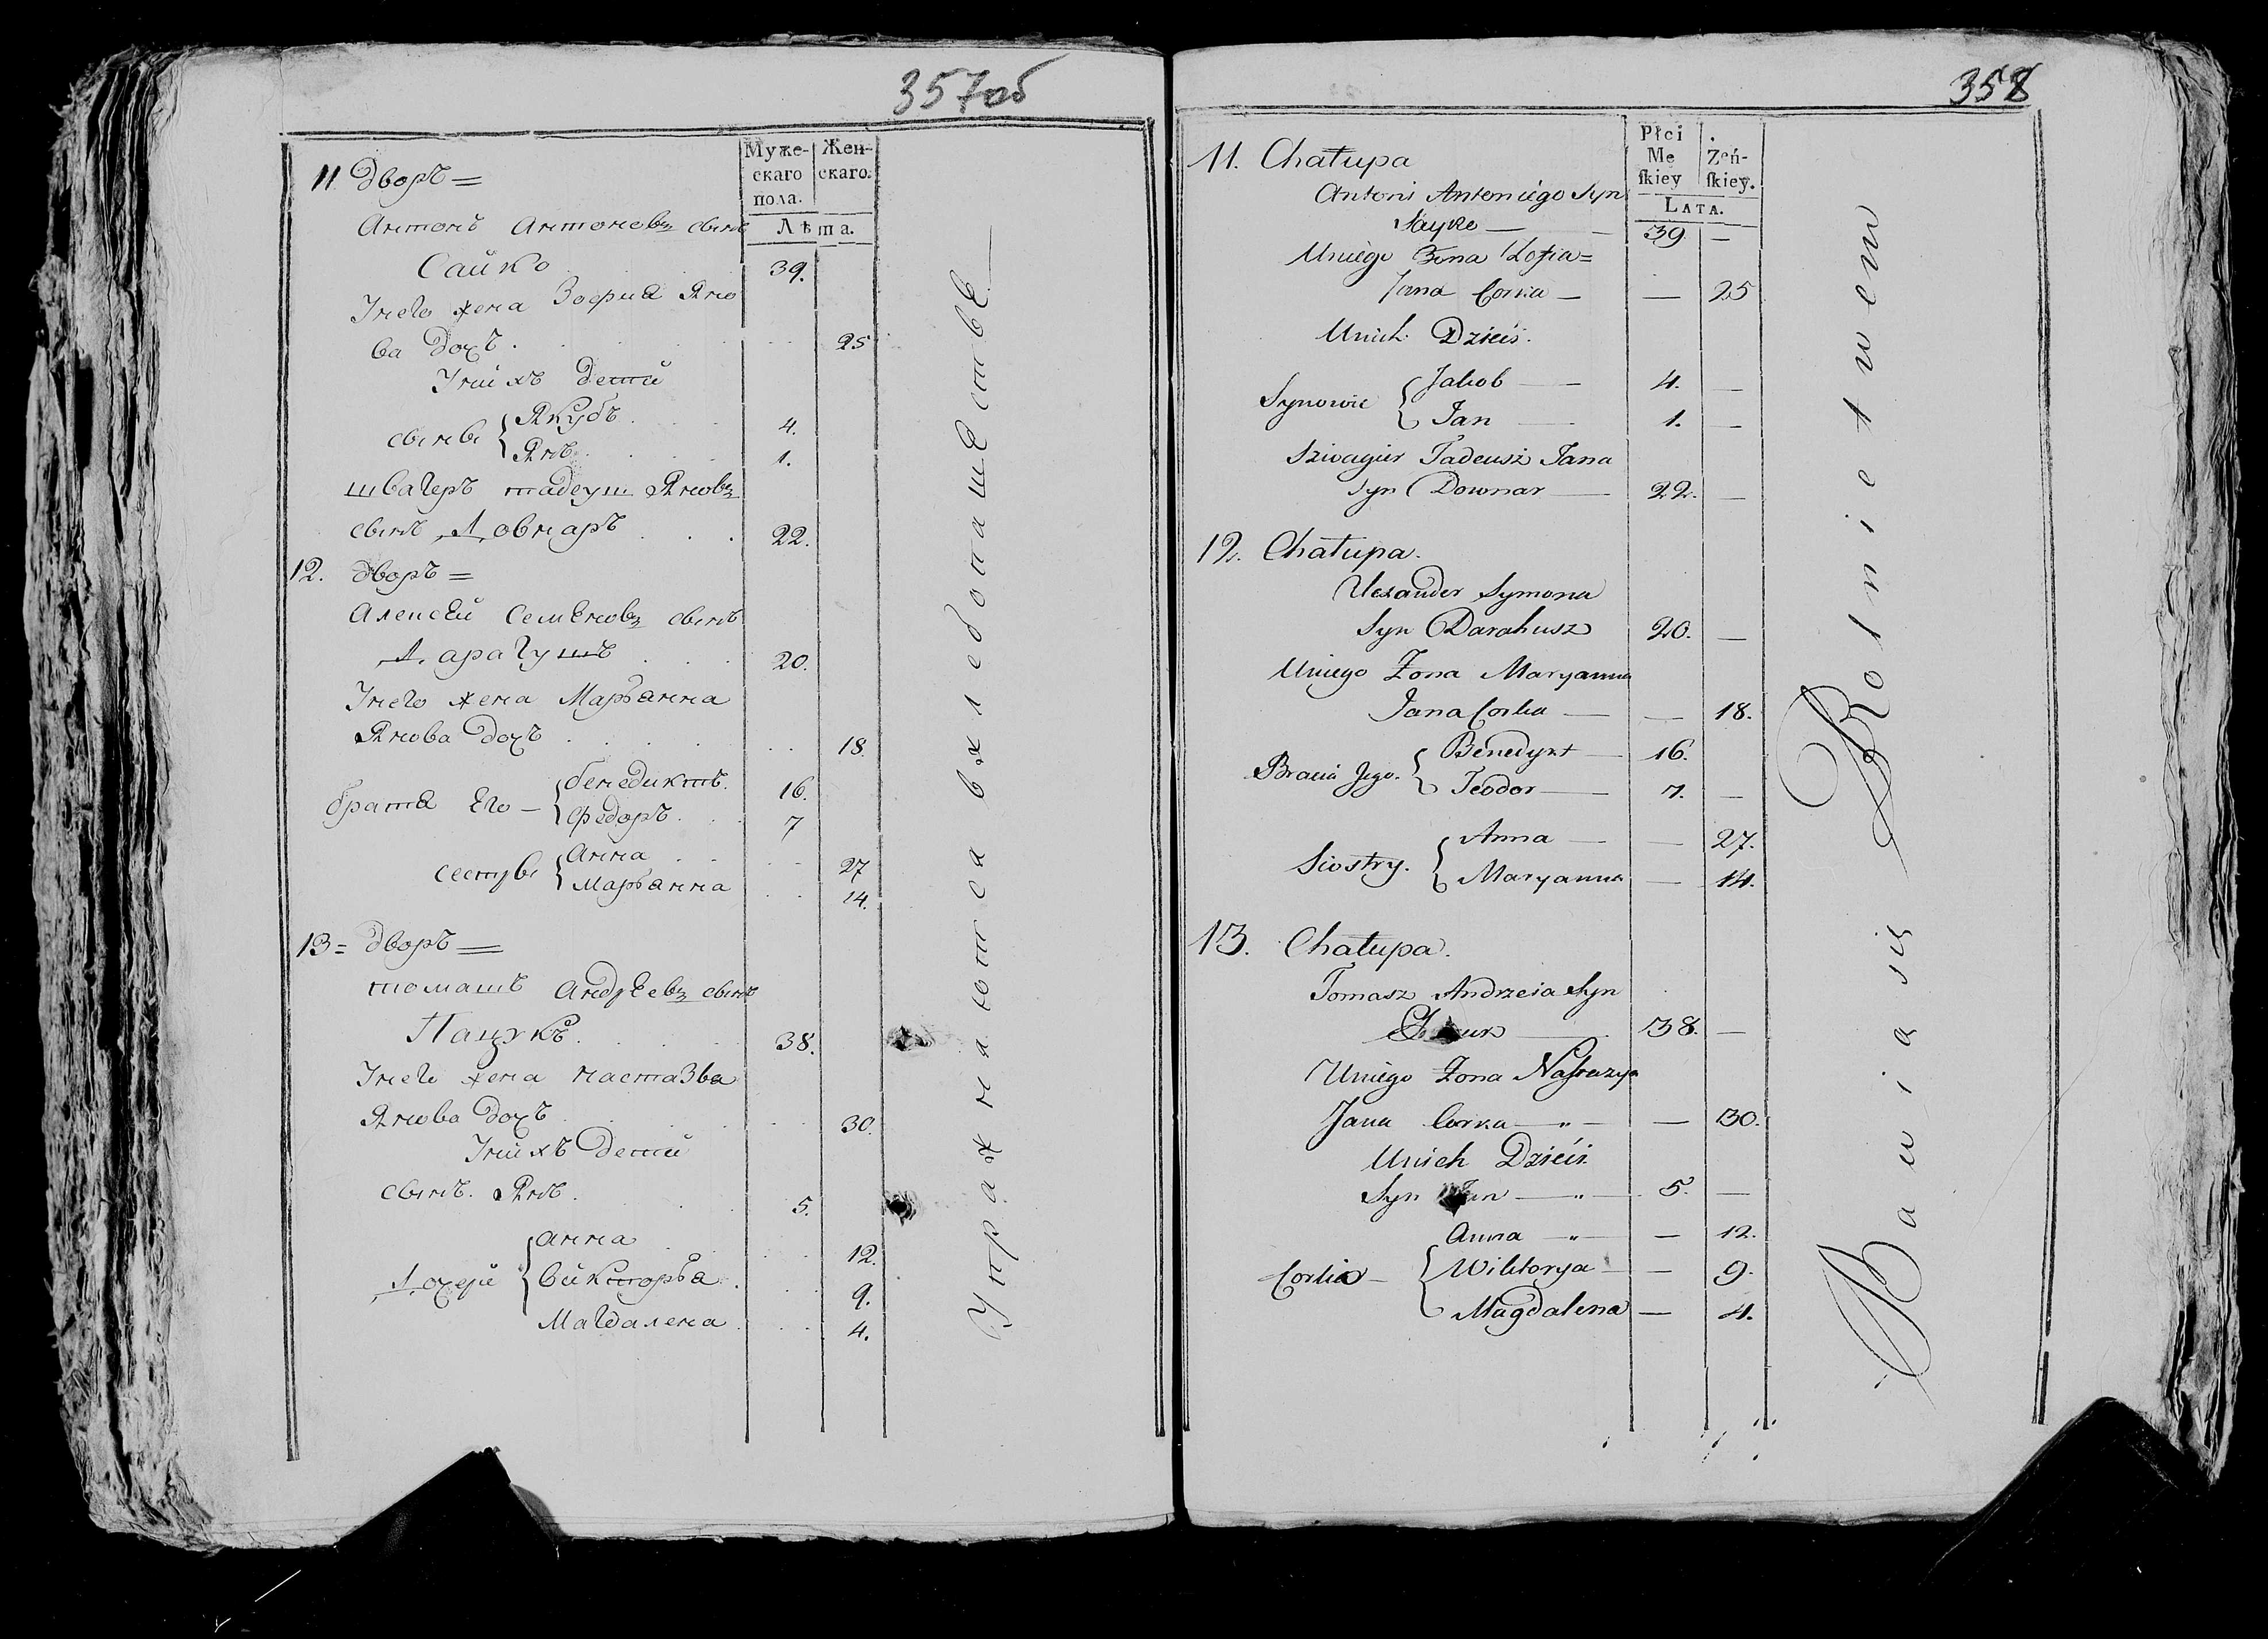 357об
Муже-
скаго
пола.
Жен-
скаго.
Лѣта.
11 дворъ =
Антонъ Антоновъ сынъ
Сайко 39.
Унего жена Зофия Яно
ва дочъ 25
Унихъ дети
сыны { Якубъ 4.
Янъ 1.
швагеръ тадеуш Яновъ
сынъ Довнаръ 22.
12. дворъ =
Алексей Семеновъ сынъ
Дарагушъ 20.
Унего жена Марьанна
Янова дочъ 18.
братя Его – { бенедиктъ. 16.
Федоръ. 7
сестры { Анна 27
Марьанна 14.
13 = дворъ =
томашъ Андреевъ сынъ
Пацукъ. 38.
Унего жена настазья
Янова дочъ 30.
Унихъ дети
сынъ. Янъ. 5.
Дочери { анна 12.
Викторья 9.
Магдалена 4.
Упражнаются в хлебопашестве
358
Płci
Me
skiey
Żeń-
skiey.
LATA.
11. Chałupa
Antoni Antoniégo Syn
Sayko — 39. —
Uniégo Żona Zofia =
Jana Corka — — 25
Unich Dzieći.
Synowie { Jakob — 4. —
Jan — 1. —
Szwagier Tadeusz Jana
Syn Downar — 22. —
12. Chałupa.
Alexander Symona
Syn Darahusz 20. —
Uniego Żona Maryanna
Jana Corka — — 18.
Bracia Jego. { Benedykt — 16.
Teodor — 7. —
Siostry. { Anna — — 27.
Maryanna — 14.
13. Chałupa.
Tomasz Andrzeia Syn
38. —
Uniégo Żona Nastazya
Jana Corka — „ — — 30.
Unich Dzieći
Syn Jan — „ — 5. —
Anna — „ — — 12.
Corki – { Wiktorya — — 9.
Magdalena — 4.
Bawią się Rolnictwem